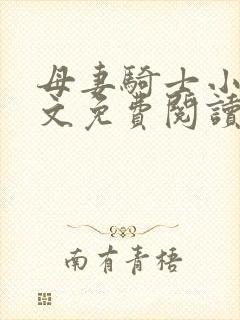 母妻騎士小
文免費閱讀
南有青梧